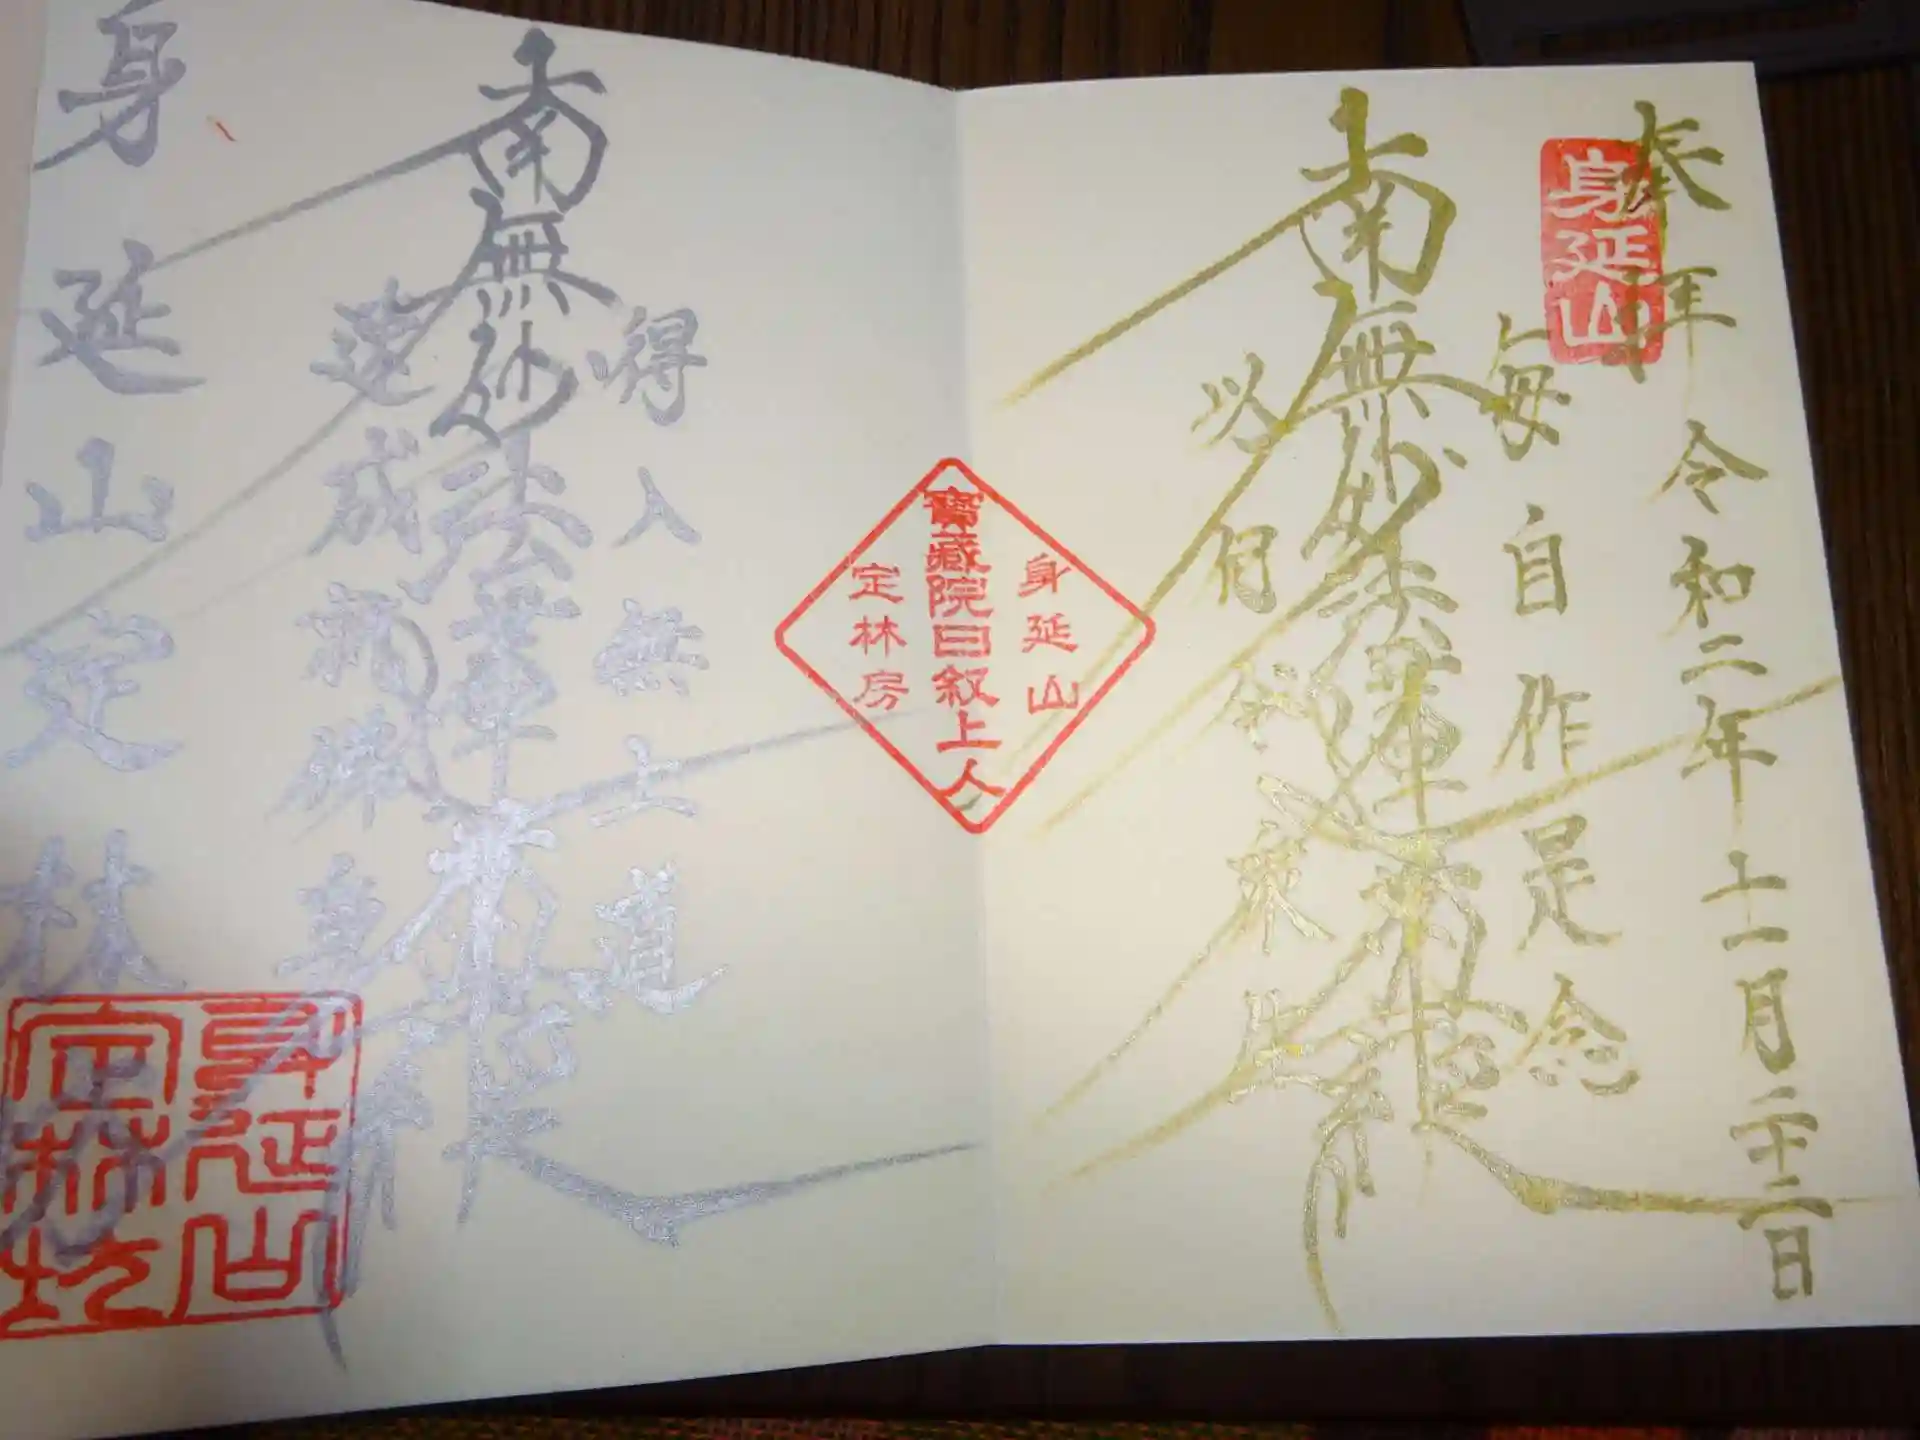 奉拝 令和二年十一月二十二日
身延山
毎自作是念
南無妙法蓮華経
以何令衆生
身延山
寶藏院日叙上人
定林房
得入無上道
南無妙法蓮華経
速成就佛身
身延山定林坊
身延山
定林坊